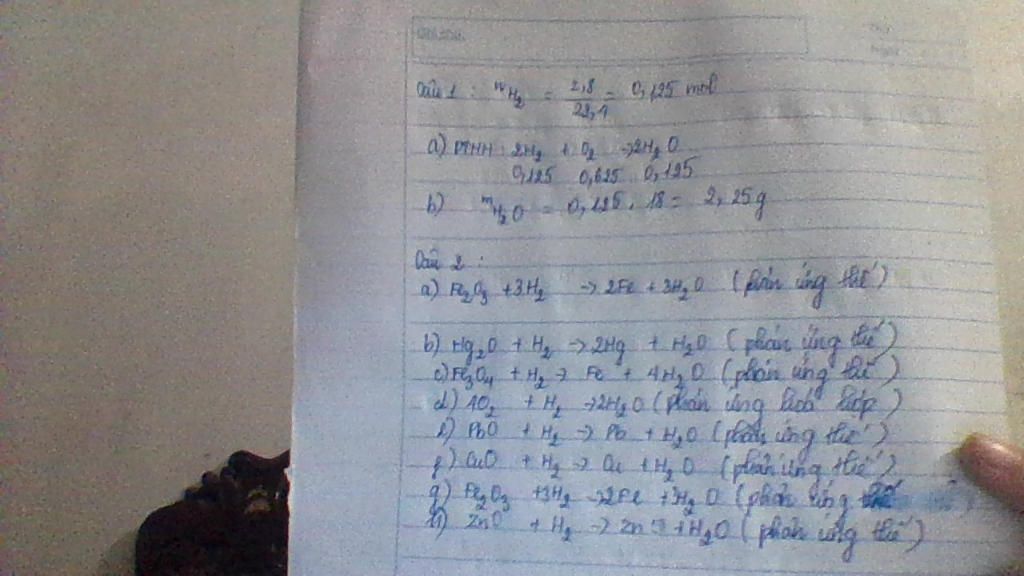 Câu 1 : nH2 = 2,8 / 22,4 = 0,125 mol
a) PTHH : 2H2 + O2 → 2H2O
0,125 0,625 0,125
b) mH2O = 0,125 . 18 = 2,25g
Câu 2 :
a) Fe2O3 + 3H2 → 2Fe + 3H2O (phản ứng thế)
b) Hg2O + H2 → 2Hg + H2O (phản ứng thế)
c) Fe3O4 + H2 → Fe + 4H2O (phản ứng thế)
d) O2 + H2 → 2H2O (phản ứng hoá hợp)
e) PbO + H2 → Pb + H2O (phản ứng thế)
f) CuO + H2 → Cu + H2O (phản ứng thế)
g) Fe2O3 + 3H2 → 2Fe + 3H2O (phản ứng thế)
h) ZnO + H2 → Zn + H2O (phản ứng thế)